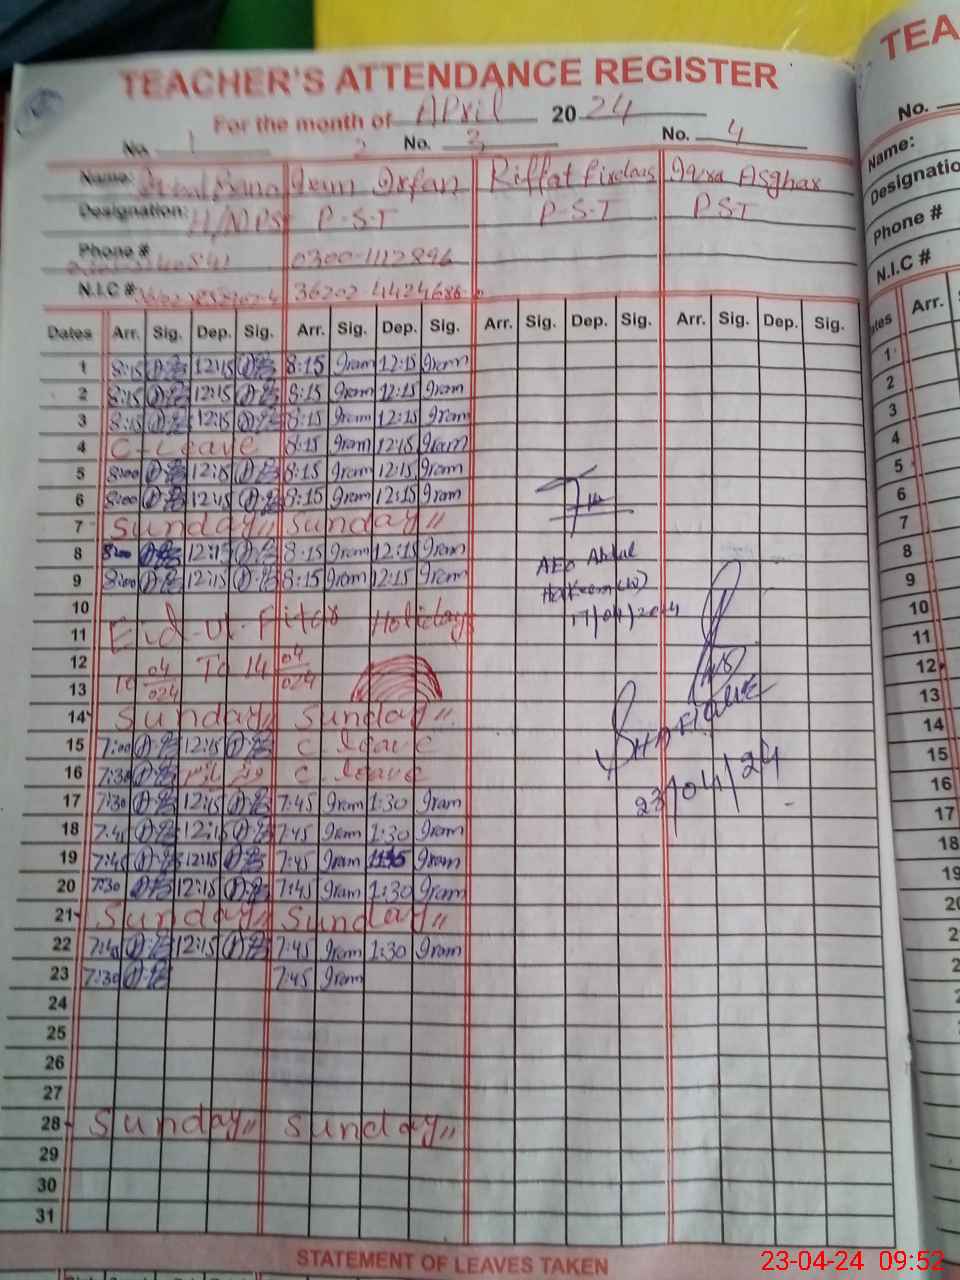 TEACHER'S ATTENDANCE REGISTER
For the month of April 2024
No. 1 2 No. 3 No. 4
Name: Irum Irfan Riffat Firdous Iqra Asghar
Designation: P-S-T P-S-T PST
Phone # 0300-1112896
N.I.C # 36202 4424686
Dates Arr. Sig. Dep. Sig. Arr. Sig. Dep. Sig. Arr. Sig. Dep. Sig. Arr. Sig. Dep. Sig.
1 8:15 12:15 8:15 Iram 12:15 Iram
2 8:15 12:15 8:15 Iram 12:15 Iram
3 8:15 12:15 8:15 Iram 12:15 Iram
4 C-Leave 8:15 Iram 12:15 Iram
5 8:00 12:15 8:15 Iram 12:15 Iram
6 8:00 12:15 8:15 Iram 12:15 Iram
7 Sunday,, Sunday,,
8 8:00 12:15 8:15 Iram 12:15 Iram
AEO Abdul
9 8:00 12:15 8:15 Iram 12:15 Iram
Hakeem (W)
10
17/04/2024
11 Eid-ul-Fiter Holidays
12 10 04/024 To 14 04/024
13
14 Sunday,, Sunday,,
15 7:00 12:15 C. leave
16 7:30 C. leave
23/04/24
17 7:30 12:15 7:45 Iram 1:30 Iram
18 7:45 12:15 7:45 Iram 1:30 Iram
19 7:45 12:15 7:45 Iram Iram
20 7:30 12:15 7:45 Iram 1:30 Iram
21 Sunday,, Sunday,,
22 7:45 12:15 7:45 Iram 1:30 Iram
23 7:30 7:45 Iram
24
25
26
27
28 Sunday,, Sunday,,
29
30
31
STATEMENT OF LEAVES TAKEN
23-04-24 09:52
TEA
No.
Name:
Designatio
Phone #
N.I.C #
Arr.
1
2
3
4
5
6
7
8
9
10
11
12
13
14
15
16
17
18